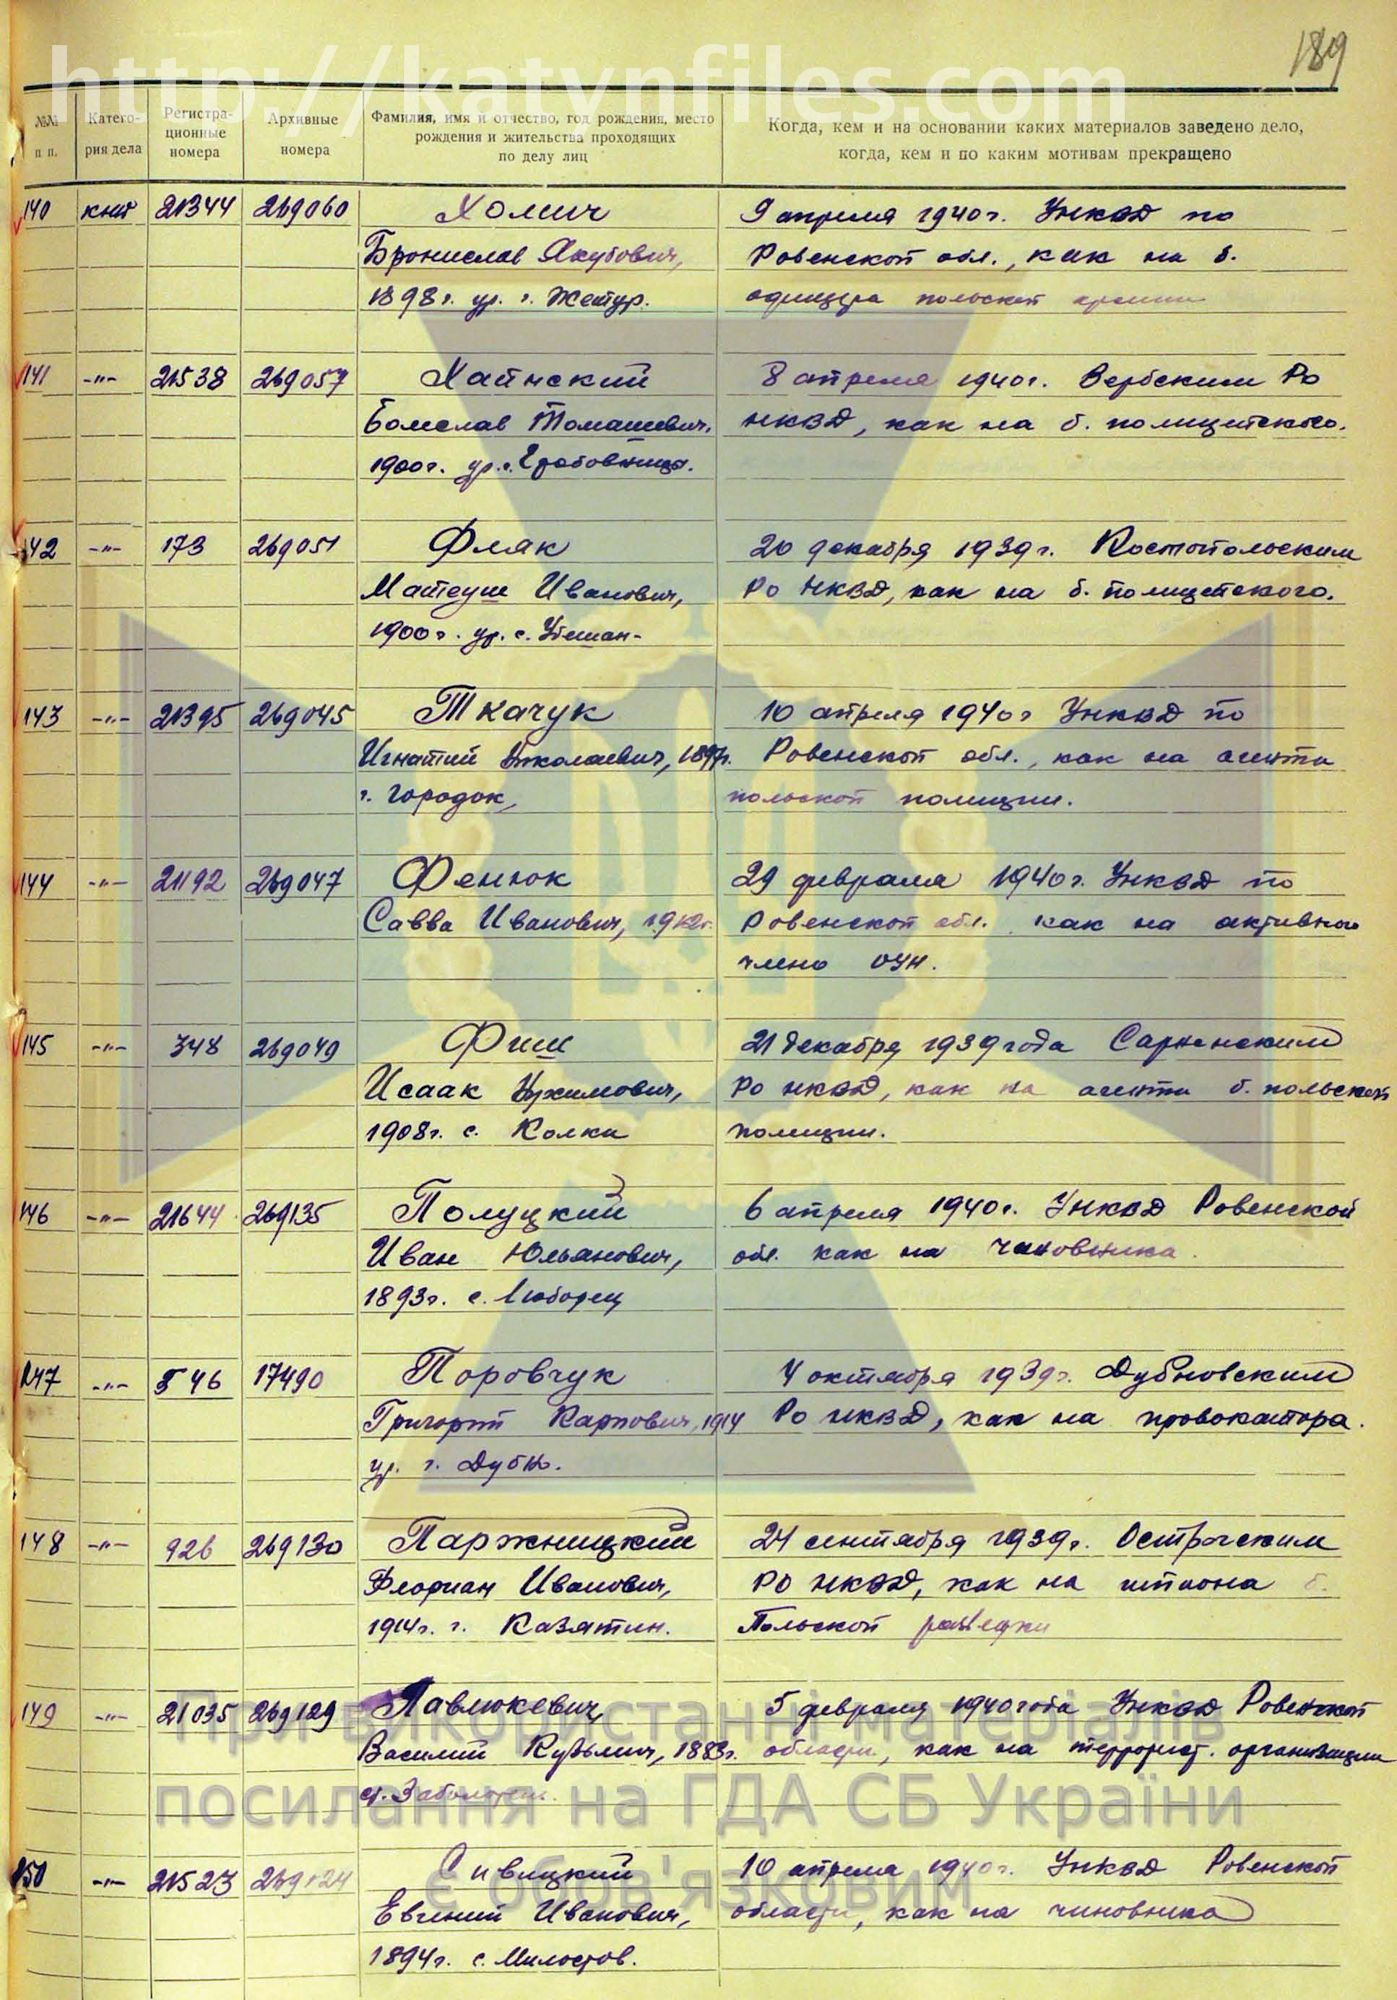 http://katynfiles.com
189
№№ п. п.
Катего-
рия дела
Регистра-
ционные
номера
Архивные
номера
Фамилия, имя и отчество, год рождения, место
рождения и жительства проходящих
по делу лиц
Когда, кем и на основании каких материалов заведено дело,
когда, кем и по каким мотивам прекращено
140 21344 269060 Холич 9 апреля 1940 г. УНКВД по
Бронислав Якубович, Ровенской обл., как на б.
1898 г. ур. г. офицера польской армии
141 -"- 21538 269057 8 апреля 1940 г. Вербским РО
Болеслав Томашевич. НКВД, как на б. полицейского.
1900 г. ур. с.
142 -"- 173 269051 Фляк 20 декабря 1939 г. Костопольским
Матеуш Иванович, РО НКВД, как на б. полицейского.
1900 г. ур. с.
143 -"- 21395 269045 Ткачук 10 апреля 1940 г УНКВД по
Игнатий Николаевич, 1897 г. Ровенской обл., как на агента
г. Городок, польской полиции.
144 -"- 21192 269047 Фенюк 29 февраля 1940 г. УНКВД по
Савва Иванович, 1912 г. Ровенской обл. как на активного
члена ОУН.
145 -"- 348 269049 Фиш 21 декабря 1939 года Сарненским
Исаак РО НКВД, как на агента б. польской
1908 г. с. Колки полиции.
146 -"- 21644 269135 Полуцкий 6 апреля 1940 г. УНКВД Ровенской
Иван Юльянович, обл. как на чиновника.
1893 г. с.
147 -"- 546 17490 Поровчук 4 октября 1939 г. Дубновским
Григорий Карпович, 1914 РО НКВД, как на провокатора.
ур. г. Дубно.
148 -"- 926 269130 Паржницкий 24 сентября 1939 г. Острогским
Флориан Иванович, РО НКВД, как на шпиона б.
1914 г. г. Казятин. Польской разведки
149 -"- 21035 269129 Павлюкевич 5 февраля 1940 года УНКВД Ровенской
Василий Кузьмич, 1883 г. области, как на террорист. организации
150 -"- 21523 269124 Сивицкий 10 апреля 1940 г. УНКВД Ровенской
Евгений Иванович, области, как на чиновника
1894 г. с. Милостов.
При використанні матеріалів
посилання на ГДА СБ України
є обов'язковим